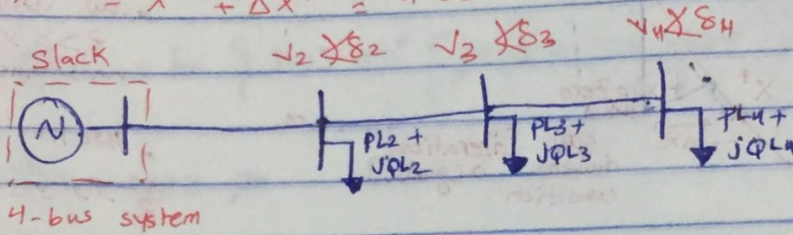 - x + Δx =
Slack
V2∠δ2 V3∠δ3 V4∠δ4
N
PL2 +
jQL2
PL3 +
jQL3
PL4 +
jQL4
4-bus system